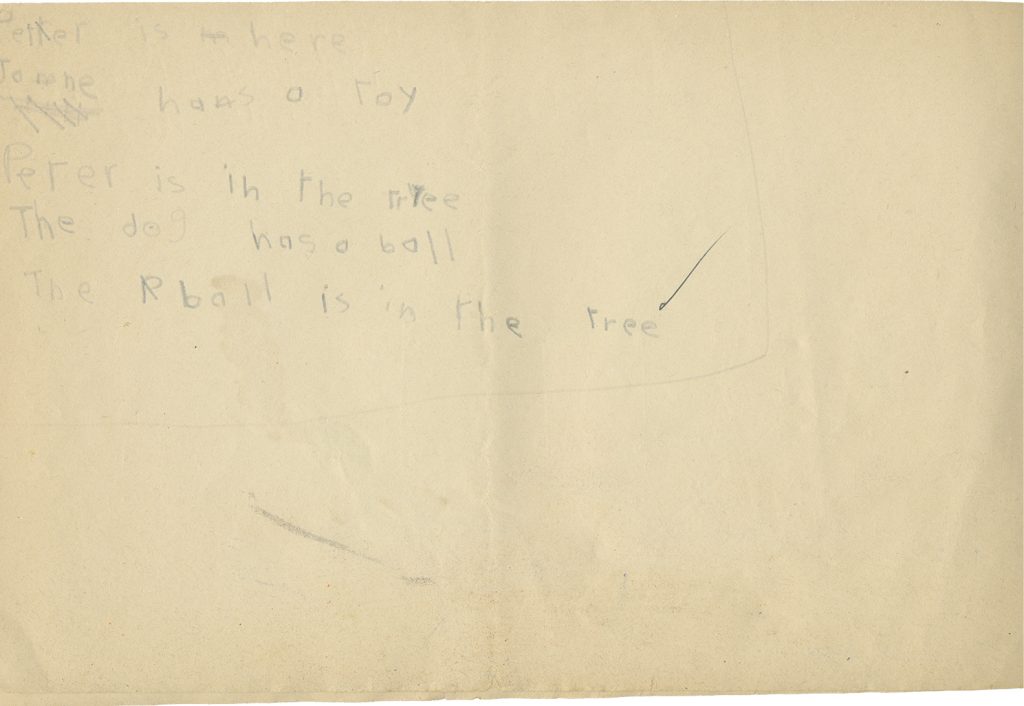 Peter is here
Janne has a toy
Peter is in the tree
The dog has a ball
The ball is in the tree